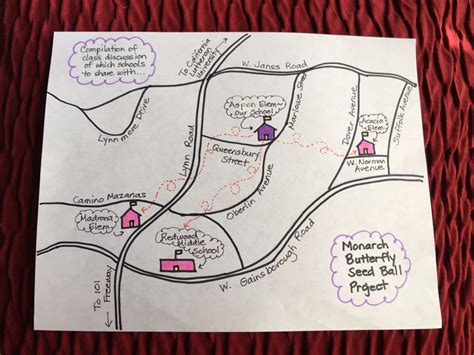 Compilation of
class discussion
of which schools
to share with...
To California
Lutheran
University
W. Janss Road
Lynnmere Drive
Lynn Road
Aspen Elem~
Our School
Marlowe Street
Dover Avenue
Suffolk Avenue
Acacia
Elem.
Queensbury
Street
W. Norman
Avenue
Camino Mazanas
Oberlin Avenue
Madrona
Elem.
Redwood
Middle
School
W. Gainsborough Road
Monarch
Butterfly
Seed Ball
Project
To 101
Freeway